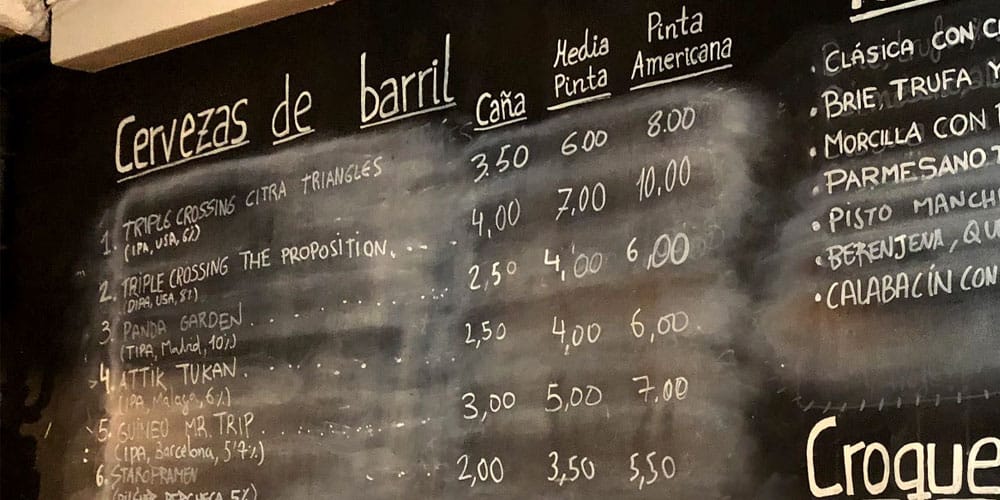 Cervezas de barril
Caña
Media
Pinta
Pinta
Americana
1. TRIPLE CROSSING CITRA TRIANGLES 3.50 6.00 8.00
(IPA, USA, 6%)
2. TRIPLE CROSSING THE PROPOSITION. . . . . 4,00 7.00 10.00
(DIPA, USA, 8%)
3. PANDA GARDEN . . . . . . . . . . 2,50 4,00 6,00
(TIPA, Madrid, 10%)
4. ATTIK TUKAN . . . . . . . . 2,50 4,00 6,00.
(IPA, Malaga, 6%)
5. GUINEO MR. TRIP . . . . . . . . . . 3,00 5,00 7.00
(IPA, Barcelona, 5'7%)
6. STAROPRAMEN 2,00 3,50 5,50
5%)
• CLÁSICA CON
• BRIE TRUFA Y
• MORCILLA CON
• PARMESANO
• PISTO MANCH
• BERENJENA, QU
• CALABACÍN CON
Croque